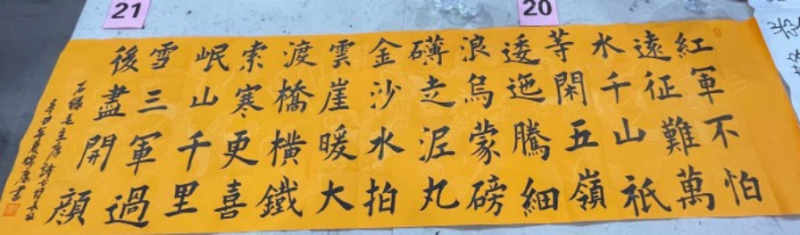 21
20
紅軍不怕
遠征難萬
水千山祇
等閑五嶺
逶迤騰細
浪烏蒙磅
礴走泥丸
金沙水拍
雲崖暖大
渡橋橫鐵
索寒更喜
岷山千里
雪三軍過
後盡開顏
右錄毛主席詩
辛丑年夏